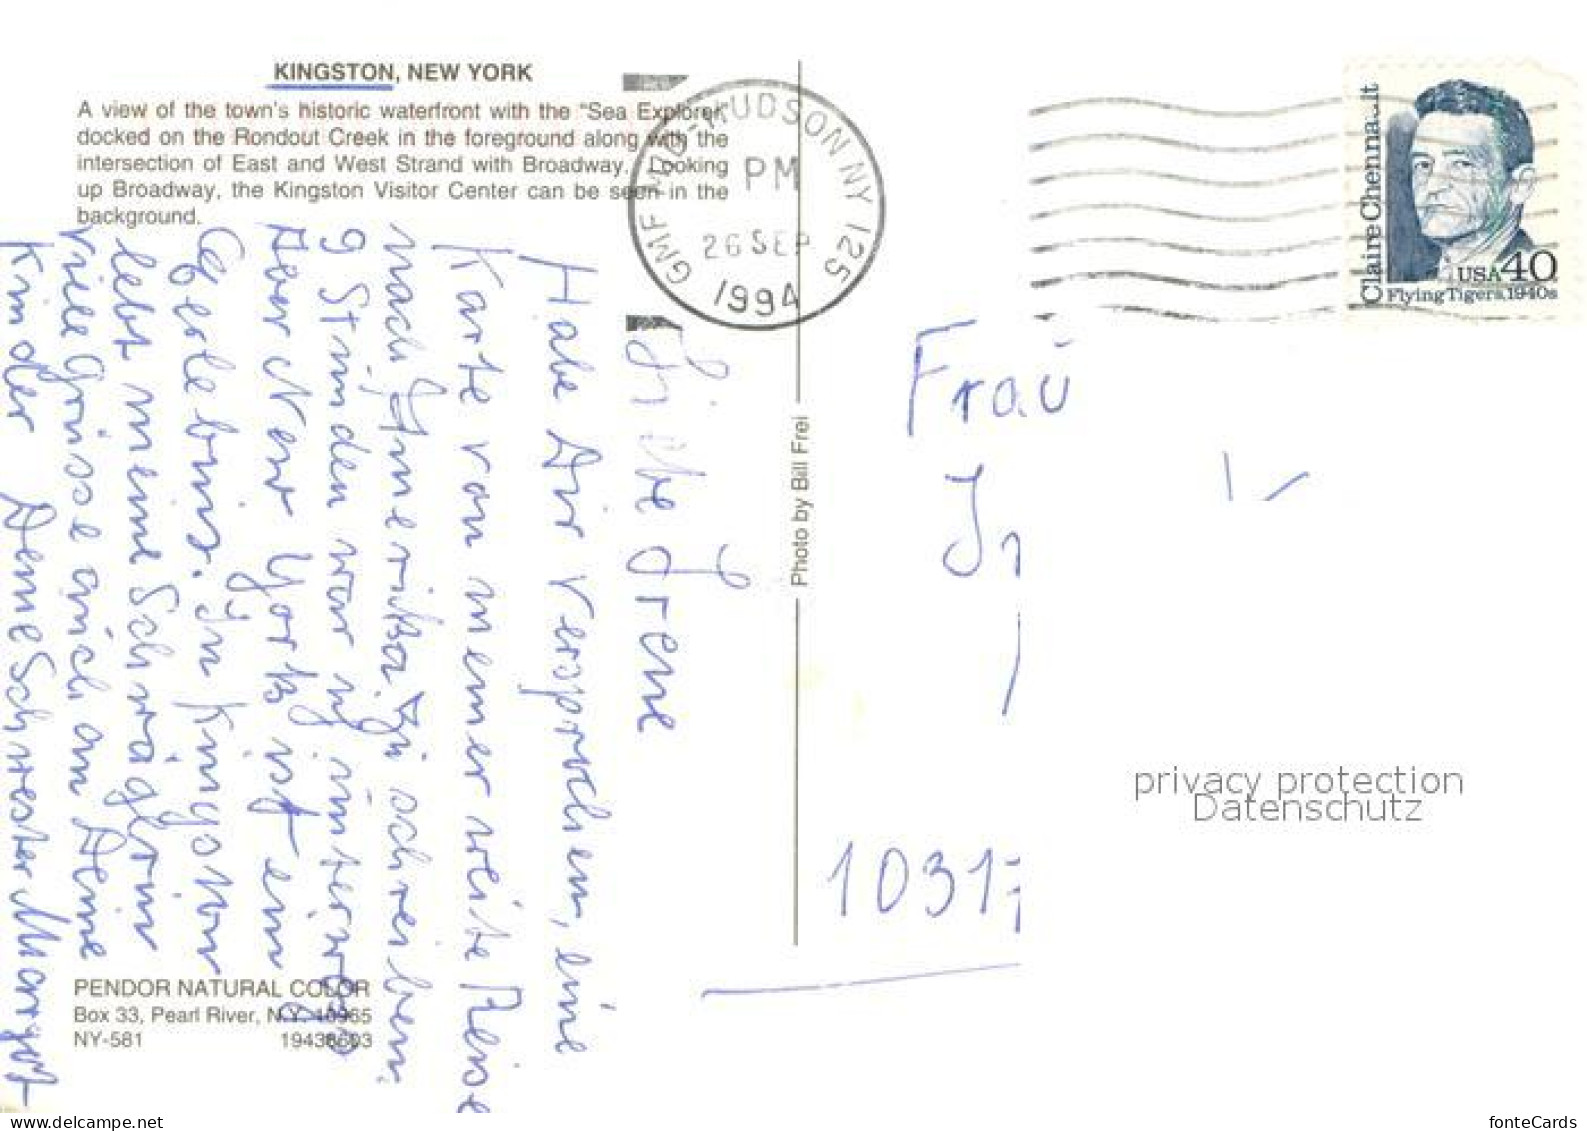 KINGSTON, NEW YORK
A view of the town's historic waterfront with the "Sea Explorer"
docked on the Rondout Creek in the foreground along with the
intersection of East and West Strand with Broadway. Looking
up Broadway, the Kingston Visitor Center can be seen in the
background.
GMF MID-HUDSON NY 125
PM
26 SEP
1994
Claire Chennault
USA 40
Flying Tigers, 1940s
Liebe Irene
Habe Dir versprochen, eine
Karte von meiner weite Reise
nach Amerika. zu schreiben.
9 Stunden war ich unterwegs
Aber New York ist ein
Erlebnis. In Kingston
lebt meine Schwägerin
viele Grüsse auch an Deine
Kinder Deine Schwester Margot
Photo by Bill Frei
Frau
1031
privacy protection
Datenschutz
PENDOR NATURAL COLOR
Box 33, Pearl River, N.Y. 10965
NY-581 19438693
www.delcampe.net
fonteCards